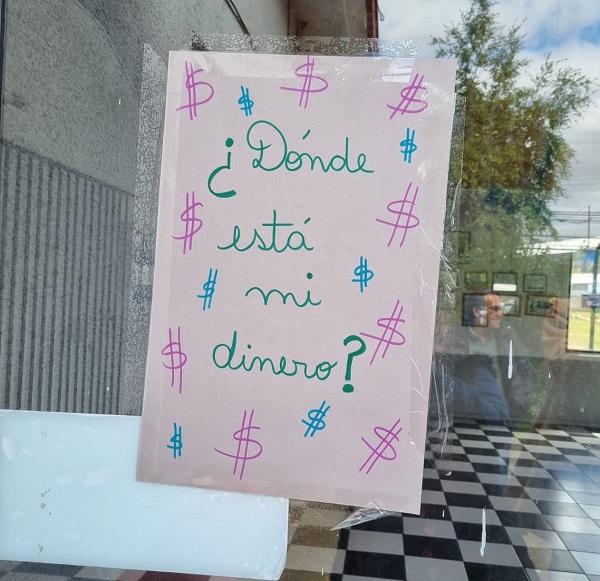 ¿Dónde
está
mi
dinero?